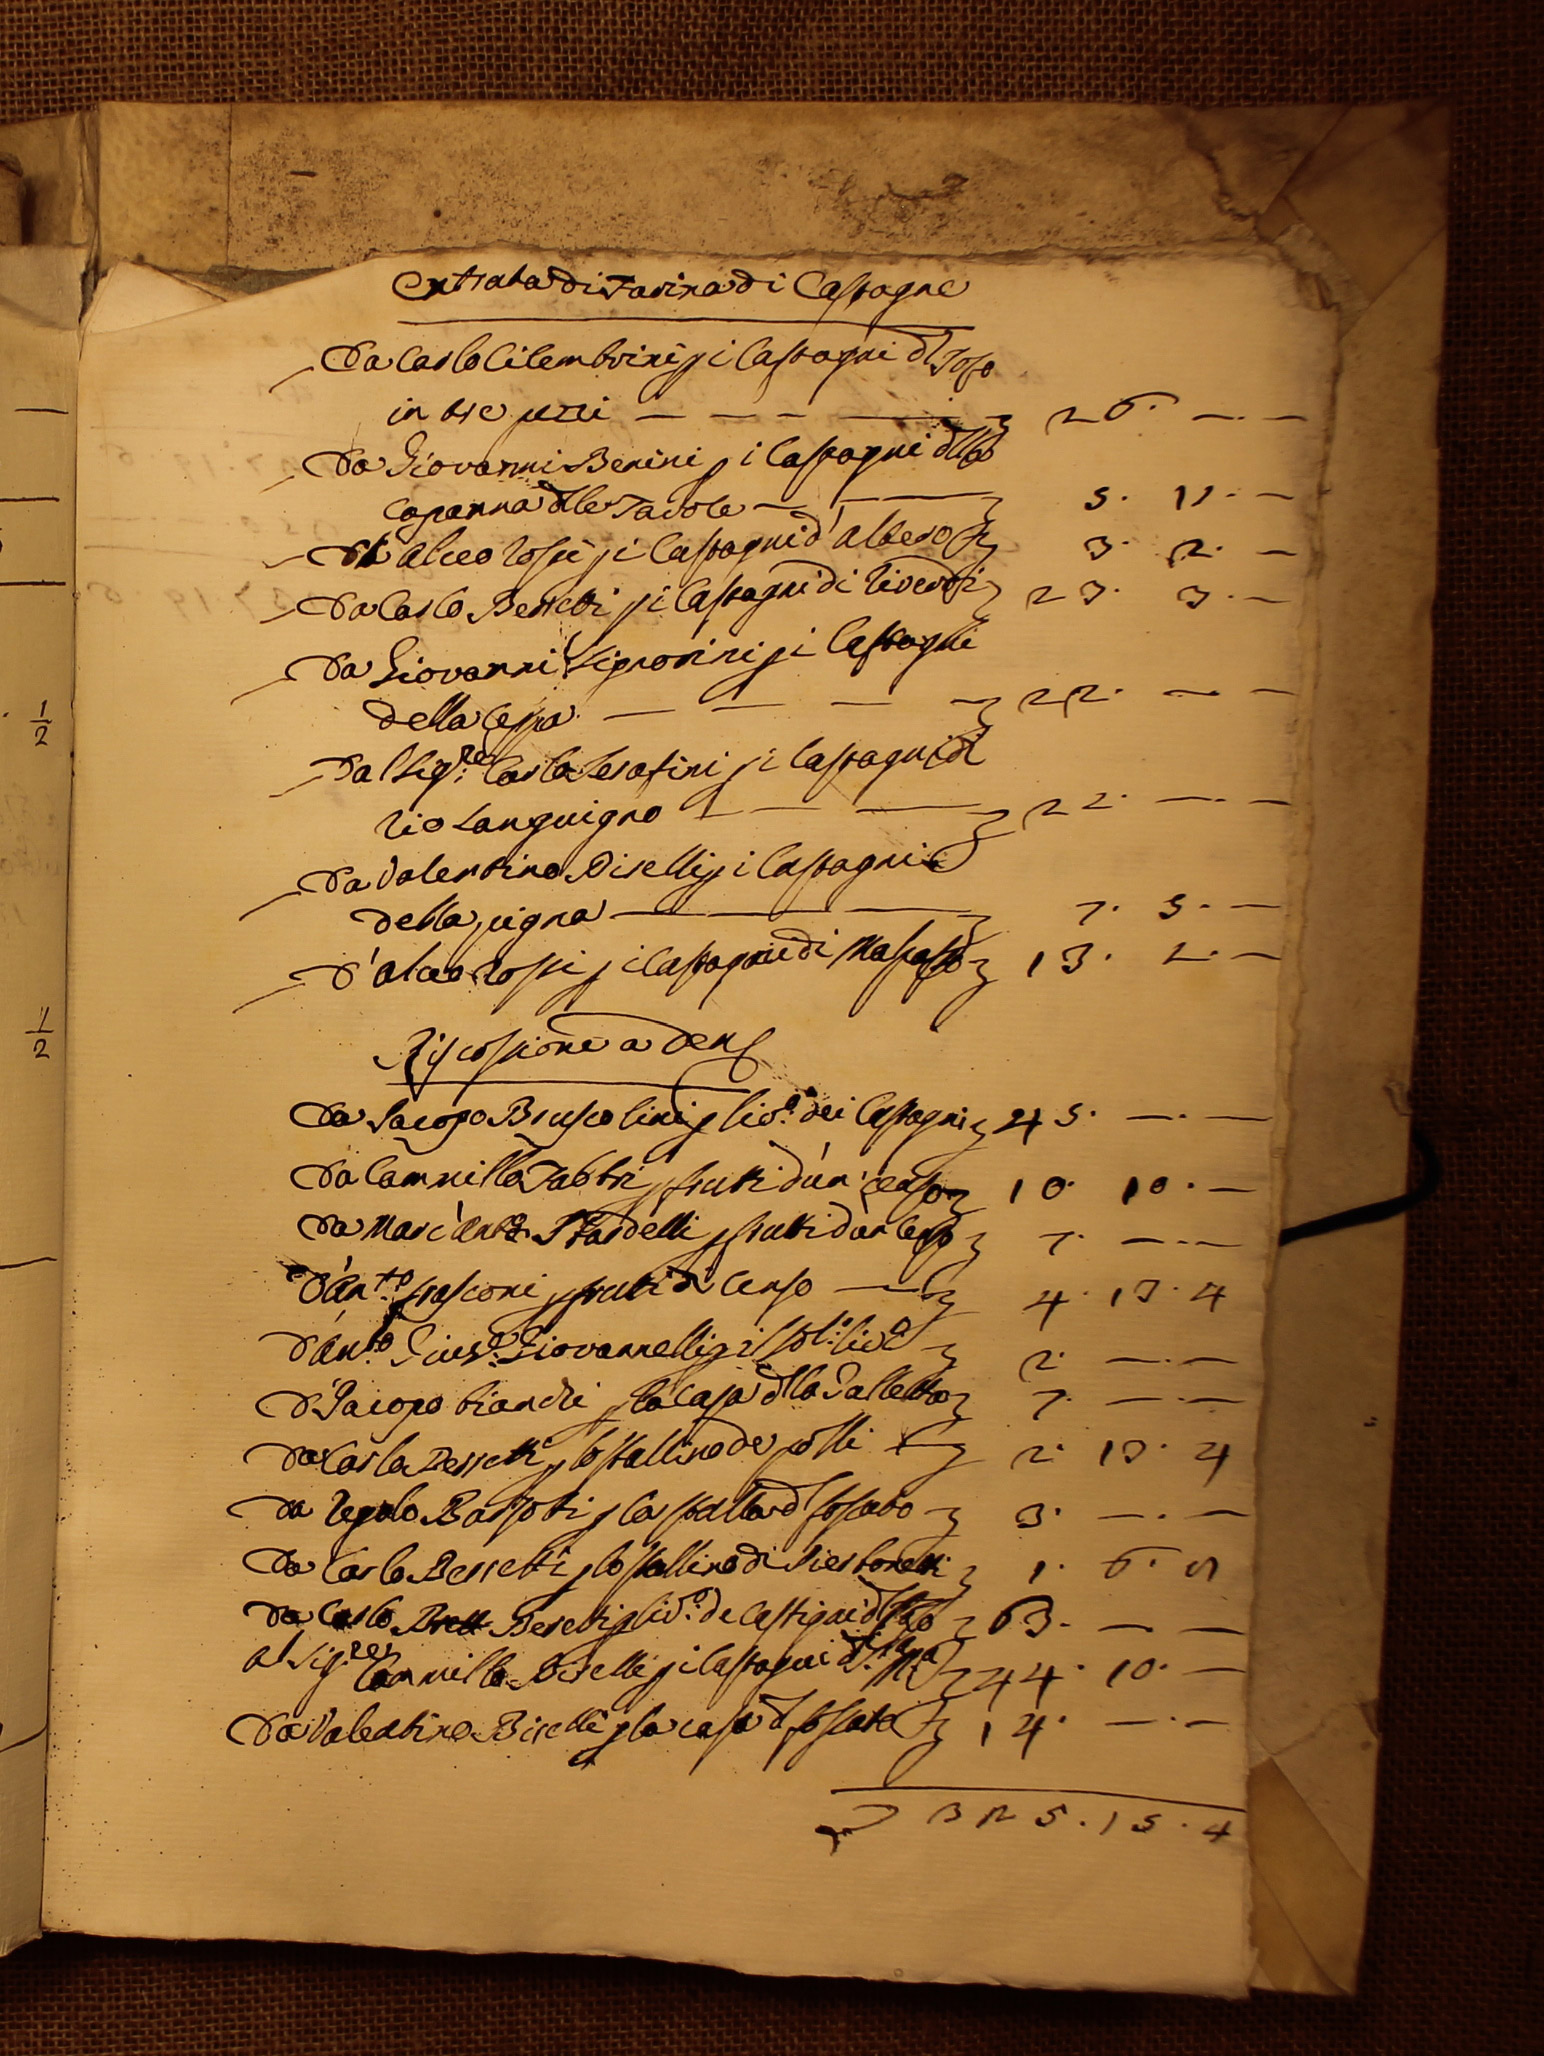 Entrata di Farina di Castagne
Da Carlo Cilembrini p i Castagni dl Fosso
in tre pezzi — — — — 26. —. —
Da Giovanni Benini p i Castagni dlla
Capanna dlle Tavole — — — 5. 11. —
D' Alceo Rossi p i Castagni d'Albero 3. 2. —
Da Carlo Bessetti p i Castagni di 23. 3. —
Da Giovanni Signorini p i Castagni
della Ceppa — — — — 22. —. —
Dal Sig.re Carlo Serafini p i Castagni di
Rio Sanguigno — — — 22. —. —
Da Valentino Biselli p i Castagni
della pigna — — — 7. 5. —
D'Alceo Rossi p i Castagni di 13. 2. —
Riscossione a Den
Da Jacopo Bruscolini p liv.o dei Castagni 45. —. —
Da Cammillo Fabbri p frutti d'un censo 10. 10. —
Da Marc'Ant.o Nardelli p frutti d'un censo 7. —. —
D'Ant.o Frasconi p frutti di Censo — 4. 13. 4
D'Ant.o Gius.e Giovannelli liv.o 2. —. —
D'Jacopo Bianchi p la casa dlla 7. —. —
Da Carlo Bessetti p lo stallino de polli 2. 13. 4
Da Regolo p la stalla dl fossato 3. —. —
Da Carlo Bessetti p lo stallino di 1. 6. 8
Da Carlo Besetti p liv.o de Castagni dl 63. —. —
al Sig.re Cammillo Biselli p i Castagni 44. 10. —
Da Valentino Biselli p la casa dl fossato 14. —. —
325. 15. 4
1/2
1/2